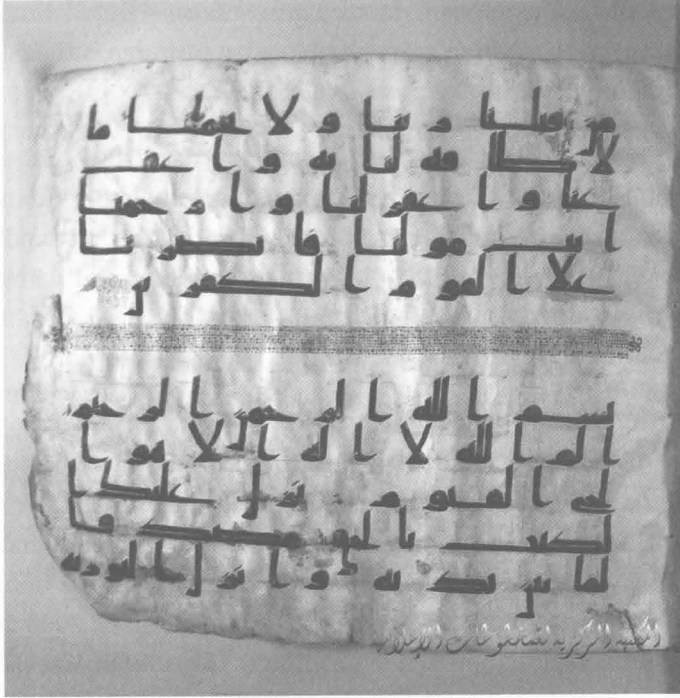 من قبلنا ربنا ولا تحملنا ما
لا طاقه لنا به واعف
عنا واغفر لنا وارحمنا
انت مولنا فانصرنا
علا القوم الكفرين
بسم الله الرحمن الرحيم
الم الله لا اله الا هو ا
لحى القيوم نزل عليك ا
لكتب بالحق مصدقا
لما بين يديه وانزل التوريه
المكتبة المركزية للمخطوطات الإسلامية